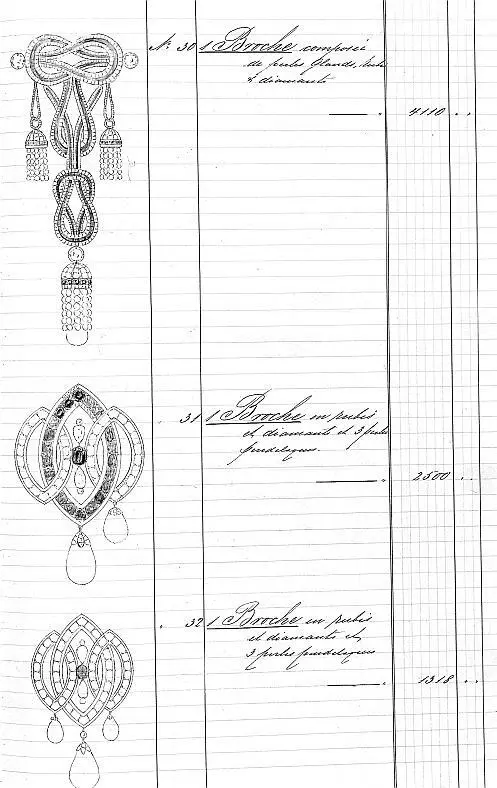 N: 30 1 Broche composée
de perles glands, rubis
& diamants
4110 . .
31 1 Broche en rubis
et diamants et 3 perles
pendeloques.
2500 . .
32 1 Broche en rubis
et diamants et
3 perles pendeloques
1318 . .